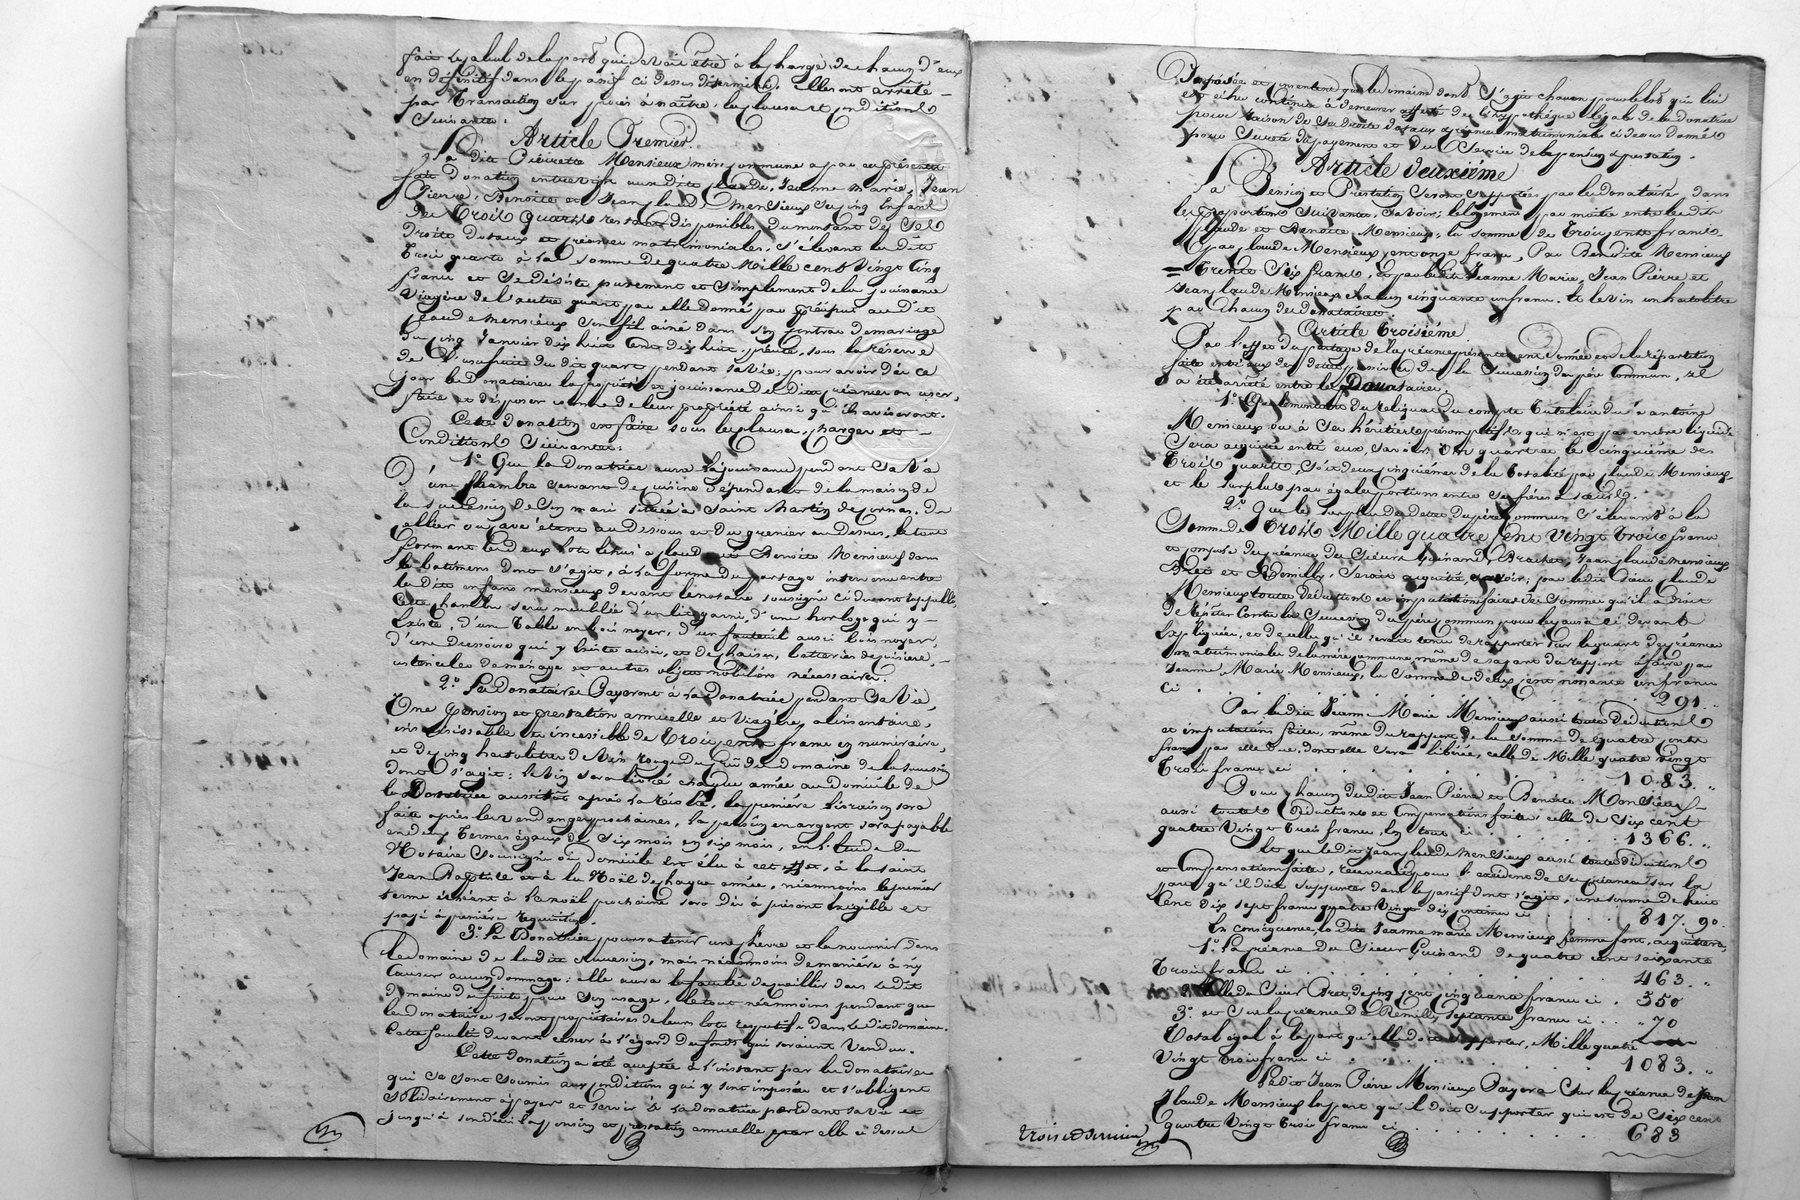 fait le calcul de la part qui devait être à la charge de chacun d'eux
en définitif dans le passif ci dessus déterminé, elles ont arrêté
par transaction sur procès à naître, les clauses et conditions
suivantes:
Article Premier.
La dite Pierrette Monsieux mère commune a par ces présentes
fait donation entrevifs aux dits Claude, Jeanne Marie, Jean
Pierre, Benoite et Jean Claude Monsieux ses cinq Enfans
des Trois quarts restans disponibles du montant de ses
droits dotaux et créances matrimoniales, s'élevant les dits
trois quarts à la somme de quatre Mille cent Vingt Cinq
francs et se désiste purement et simplement de la jouissance
Viagère de l'autre quart par elle donné par préciput au dit
Claude Monsieux son fils ainé dans son contrat de mariage
du cinq Janvier dix huit cent dix huit, sous la réserve
de l'usufruit du dit quart pendant sa vie; pour avoir dès ce
jour les Donataires la propriété et jouissance des dites créances en user,
faire et disposer comme de leur propriété ainsi qu'ils aviseront.
Cette donation est faite sous les clauses, charges et
Conditions Suivantes:
1º Que la Donatrice aura la jouissance pendant sa Vie
D'une chambre servant de cuisine dépendant de la maison de
la succession de son mari située à Saint Martin de Cornas, du
cellier ou cave étant au dessous et du grenier au dessus, le tout
formant les deux lots échus à Claude et Benoite Monsieux dans
les batimens dont s'agit, à la forme du partage intervenu entre
les dits enfans Monsieux devant le notaire soussigné ci devant rappellé,
Cette chambre sera meublée d'un lit garni, d'une horloge qui y
Existe, d'un Table en bois noyer, d'un fauteuil aussi bois noyer,
d'une Dressoire qui y Existe aussi, et de chaises, batteries de cuisine,
ustenciles de ménage et autres objets mobiliers nécessaires.
2º Les Donataires Payeront à la Donatrice pendant sa Vie,
Une pension et prestation annuelle et Viagère, alimentaire,
insaisissable et incessible de Trois cents francs en numéraire,
et de cinq hectolitres de Vin rouge du Crû du domaine de la succession
dont s'agit: le Vin sera livré chaque année au domicile de
la Donatrice aussitôt après la récolte, la première livraison sera
faite après les vendanges prochaines, la pension en argent sera payable
en deux termes égaux de Six mois en six mois, en l'étude du
Notaire Soussigné où domicile est élu à cet effet, à la saint
Jean Baptiste et à la Noël de chaque année, néanmoins le premier
terme échéant à la noël prochaine sera dès à présent exigible et
payé à première requisition.
3º La Donatrice pourra tenir une chèvre et la nourrir dans
Le domaine de la dite Succession, mais néanmoins de manière à n'y
Causer aucun dommage: elle aura la faculté de cueillir dans le dit
domaine des fruits pour son usage, le tout néanmoins pendant que
les donataires seront propriétaires de leurs lots respectifs dans le dit domaine.
Cette faculté devant cesser à l'égard des fonds qui seraient Vendus.
Cette donation a été acceptée à l'instant par les donataires
qui se sont soumis aux conditions qui y sont imposées et s'obligent
solidairement à payer et servir à la donatrice pendant sa vie et
jusqu'à son décès la pension et prestation annuelle par elle ci dessus
Imposée et consentent que le domaine dont s'agit chacun pour le lot qui lui
est échu continue à demeurer affecté de l'hypothèque légale de la donatrice
pour raison de ses droits dotaux créances matrimoniales ci dessus donnés
pour Sureté du payement et du Service de la pension et prestation.
Article deuxième
La Pension et Prestation seront supportées par les donataires dans
les proportions suivantes, Savoir: le logement par moitié entre les dits
Claude et Benoite Monsieux; la somme de trois cents francs
par Claude Monsieux, cent onze francs, Par Benoite Monsieux
trente Six francs, et par les dits Jeanne Marie, Jean Pierre et
Jean Claude Monsieux chacun cinquante un francs. Et le Vin un hectolitre
par chacun des donataires.
Article troisième
Par l'effet du partage de la créance présentement donnée et de la répartition
faite entr'eux des dettes passives de la Succession du père Commun, il
a été arrêté entre les Donataires:
1º Que le montant du reliquat du compte tutelaire dû à antoine
Monsieux ou à ses héritiers présomptifs qui n'est pas encore liquidé
Sera acquitté entre eux, savoir, un quart et le cinquième des
trois quarts, soit deux cinquièmes de la totalité par Claude Monsieux
et le surplus par égales portions entre ses frères et soeurs.
2º Que le surplus des dettes du père Commun s'élevant à la
Somme de Trois Mille quatre Cent Vingt Trois francs
et composé des créances des Sieurs Guinand, Brachet, Jean Claude Monsieux
Bret et Remilly, seront acquittés, savoir, par le dit Sieur Claude
Monsieux toutes déductions et imputations faites des sommes qu'il a droit
de répéter contre la Succession du père commun pour les causes ci devant
Expliquées, et de celles qu'il serait tenu de rapporter sur le quart des créances
matrimoniales de la mère commune même de sa part du rapport à faire par
Jeanne Marie Monsieux, la somme de deux cent nonante un francs
ci . . . . . . . . . . . 291. "
Par la dite Jeanne Marie Monsieux aussi toutes déductions
et imputations faites, même du rapport de la somme de quatre cents
francs par elle dus, dont elle sera libérée, celle de Mille quatre vingt
trois francs ci . . . . . . . . . 1083. "
Pour chacun des dits Jean Pierre et Benoite Monsieux
aussi toutes déductions et compensations faites celle de six cent
quatre Vingt trois francs, En tout ci . . . . . 1366. "
Et que le dit Jean Claude Monsieux aussi toutes déductions
et compensations faites, recevra pour l'excédent de sa créance sur la
part qu'il doit supporter dans le passif dont s'agit, une somme de huit
Cent dix sept francs quatre Vingt dix centimes ci . . . . 817. 90.
En conséquence, la dite Jeanne Marie Monsieux femme font, acquittera,
1º La créance du Sieur Guinand de quatre cent soixante
trois francs ci . . . . . . . . . 463. "
2º Celle du Sieur Bret, de cinq cent cinquante francs ci . 550
3º et sur la créance de Remilly septante francs ci . . " 70
Total égal à la part qu'elle doit supporter, Mille quatre
Vingt trois francs ci . . . . . . . . 1083. "
Le dit Jean Pierre Monsieux Payera sur la créance de Jean
Claude Monsieux la part qu'il doit supporter qui est de six cent
quatre Vingt trois francs ci . . . . . . . 683